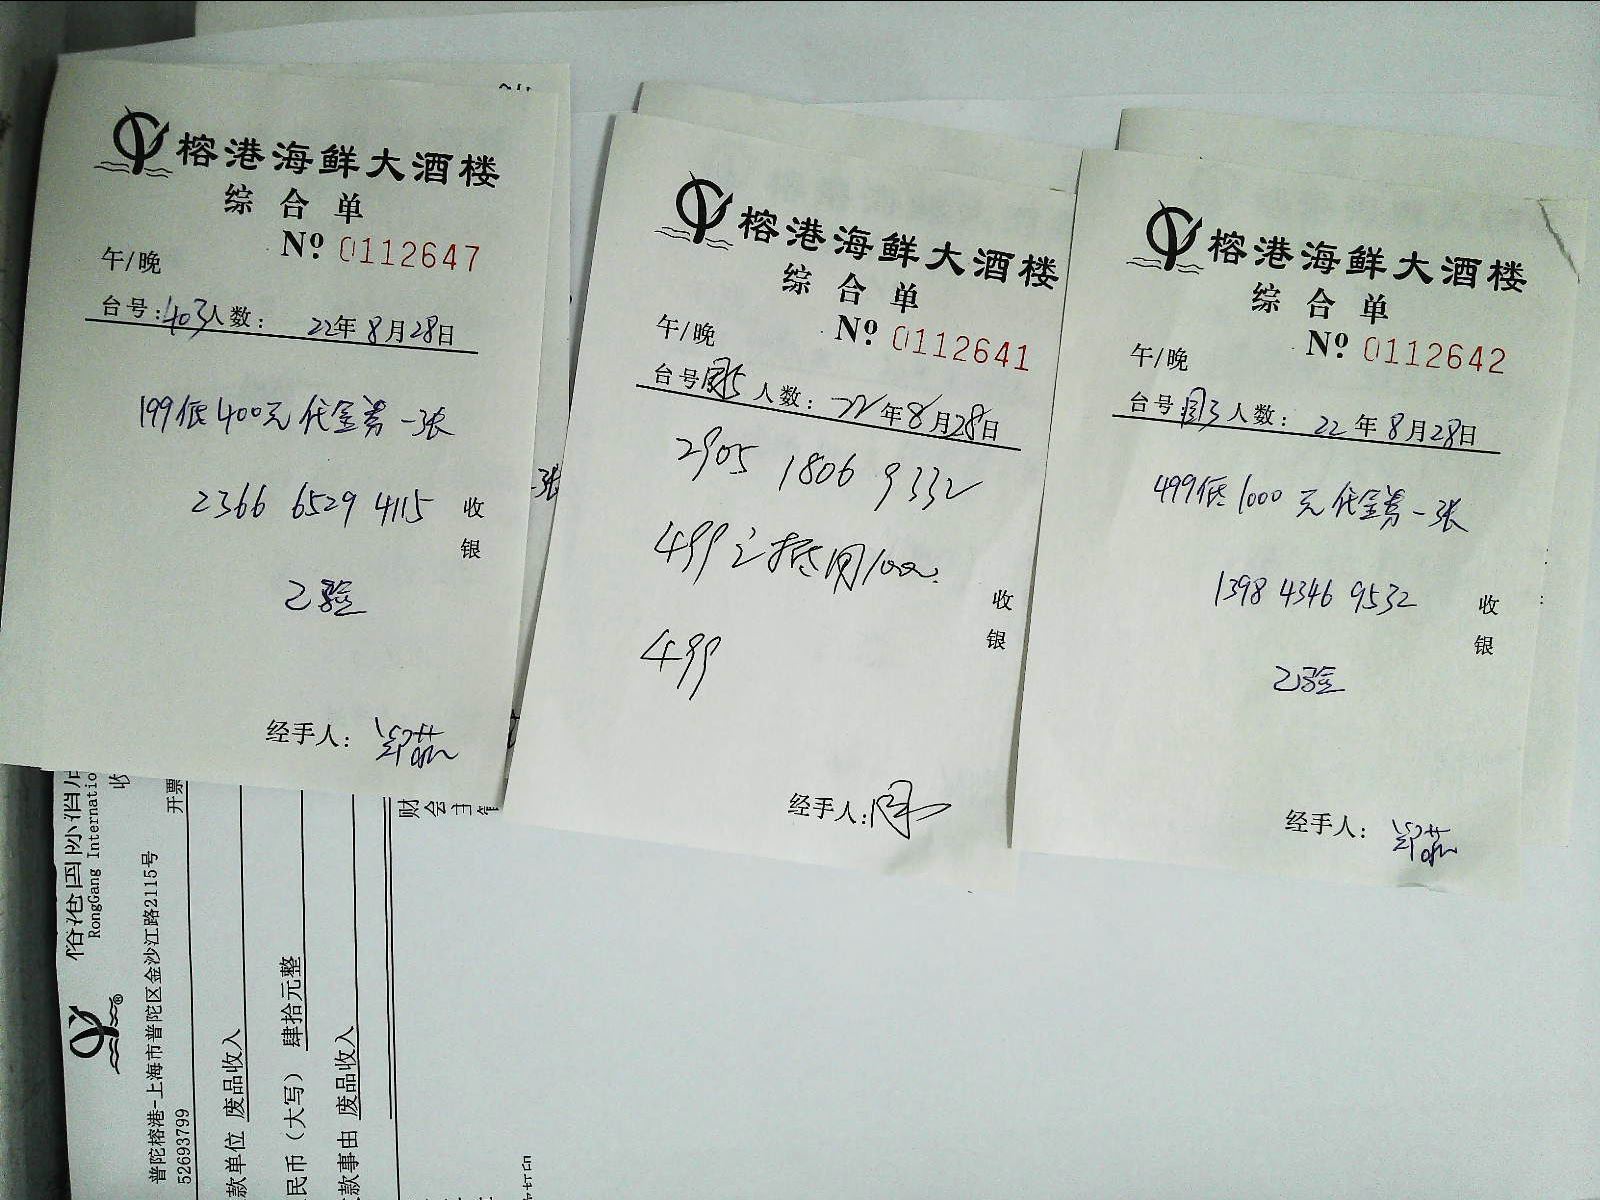 榕港海鲜大酒楼
综合单
№ 0112647
午/晚
台号:403人数: 22年8月28日
199低400元代金券一张
2366 6529 4115
收银
已验
经手人:
榕港海鲜大酒楼
综合单
№ 0112641
午/晚
台号 人数: 22年8月28日
2905 1806 9332
499元抵用1000
499
收银
经手人:
榕港海鲜大酒楼
综合单
№ 0112642
午/晚
台号 人数: 22年8月28日
499低1000元代金券一张
1398 4346 9532
收银
已验
经手人:
张
RongGang Internatio
收
普陀榕港-上海市普陀区金沙江路2115号
52693799
开票
款单位 废品收入
民币（大写） 肆拾元整
款事由 废品收入
财会主管